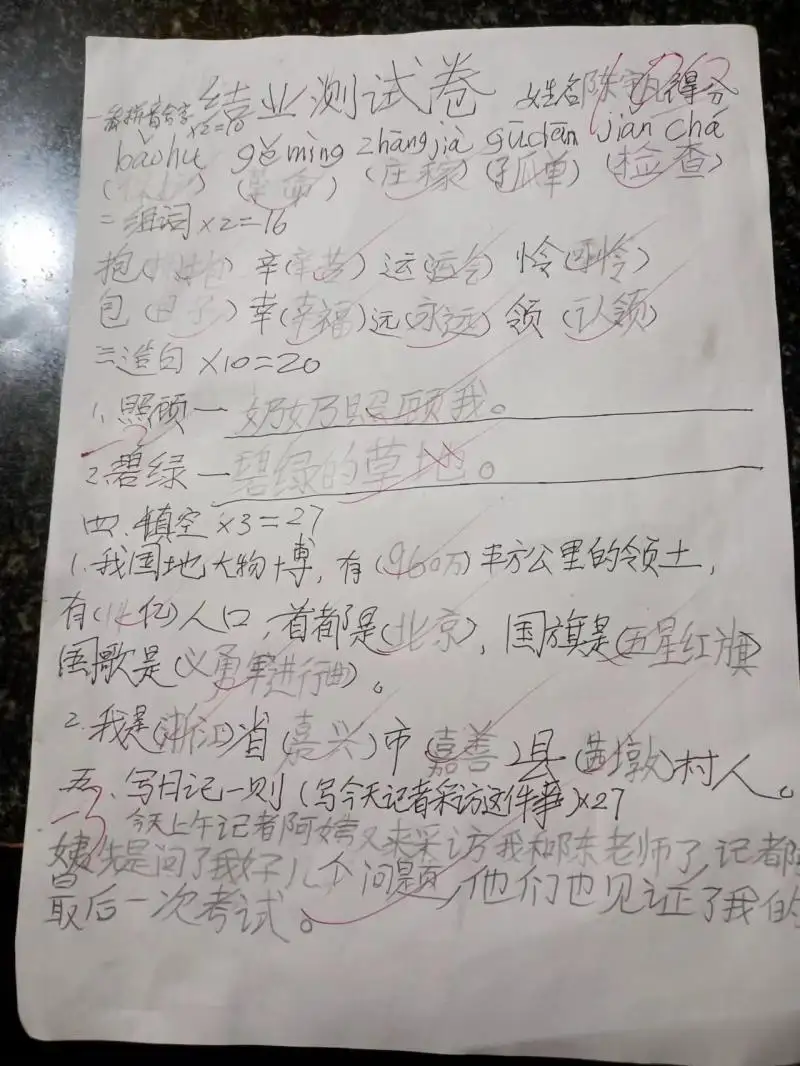 结业测试卷 姓名陈 得分 100
一看拼音写字 x2=10
bǎohù gémìng zhāngjià gūdān jiǎn chá
( ) (革命) (庄稼) (孤单) (检查)
二组词 x2=16
抱( 抱) 辛(辛苦) 运(运会) 怜(可怜)
包( 子) 幸(幸福) 远(永远) 领(认领)
三造句 x10=20
1、照顾一 奶奶照顾我。
-3
2.碧绿一 碧绿的草地。
四.填空 x3=27
1.我国地大物博,有(960万)平方公里的领土,
有(14亿)人口,首都是(北京),国旗是(五星红旗)
国歌是(义勇军进行曲)。
2.我是(浙江)省(嘉兴)市(嘉善)县( 墩)村人。
五、写日记一则(写今天记者采访这件事)x27
-3
今天上午记者阿姨又来采访我和陈老师了,记者阿
姨先是问了我好几个问题,他们也见证了我的
最后一次考试。